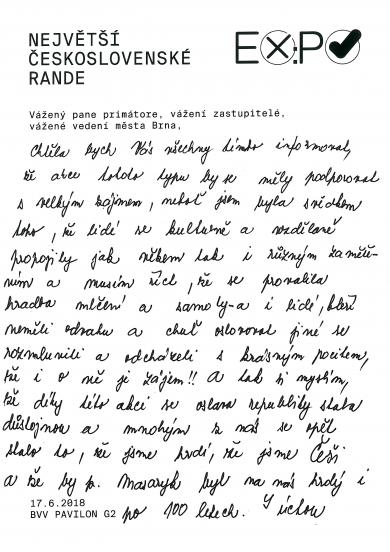 NEJVĚTŠÍ
ČESKOSLOVENSKÉ
RANDE
EXPO
Vážený pane primátore, vážení zastupitelé,
vážené vedení města Brna,
chtěla bych Vás všechny tímto informovat,
že akce tohoto typu by se měly podporovat
s velkým zájmem, neboť jsem byla svědkem
toho, že lidé se kulturně a vzdělaně
propojily jak věkem tak i různým zaměře-
ním a musím říct, že se prorazila
hradba mlčení a samoty-a i lidé, kteří
neměli odvahu a chuť oslovovat jiné se
rozmluvili a odcházeli s krásným pocitem,
že i o ně je zájem!! A tak si myslím,
že díky této akci se oslava republiky stala
důstojnou a mnohým z nás se opět
stalo to, že jsme hrdí, že jsme Češi
a že by p. Masaryk byl na nás hrdý i
17.6.2018
BVV PAVILON G2 po 100 letech. S úctou